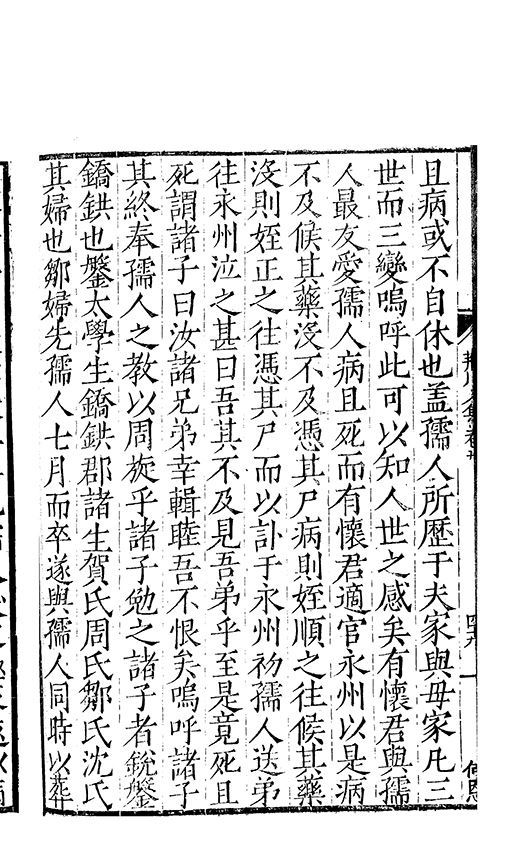 且病或不自休也盖孺人所歷于夫家與母家凡三
世而三變嗚呼此可以知人世之感矣有懷君與孺
人最友愛孺人病且死而有懷君適官永州以是病
不及候其藥沒不及憑其尸病則姪順之往候其藥
沒則姪正之往憑其尸而以訃于永州初孺人送弟
往永州泣之甚曰吾其不及見吾弟乎至是竟死且
死謂諸子曰汝諸兄弟幸輯睦吾不恨矣嗚呼諸子
其終奉孺人之教以周旋乎諸子勉之諸子者銳鎜
鐈鉷也鎜太學生鐈鉷郡諸生賀氏周氏鄒氏沈氏
其婦也鄒婦先孺人七月而卒遂與孺人同時以葬